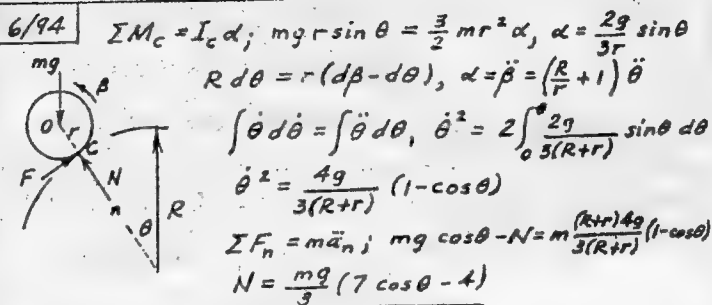 6/94
ΣM_c = I_c α; mg r sin θ = 3/2 mr² α, α = 2g/3r sin θ
R dθ = r(dβ-dθ), α = β̈ = (R/r + 1) θ̈
∫ θ̇ dθ̇ = ∫ θ̈ dθ, θ̇² = 2∫₀^θ 2g/3(R+r) sin θ dθ
θ̇² = 4g/3(R+r) (1-cos θ)
ΣF_n = mä_n; mg cos θ - N = m (R+r)4g/3(R+r) (1-cos θ)
N = mg/3 (7 cos θ - 4)
mg
β
O
r
C
F
N
n
θ
R